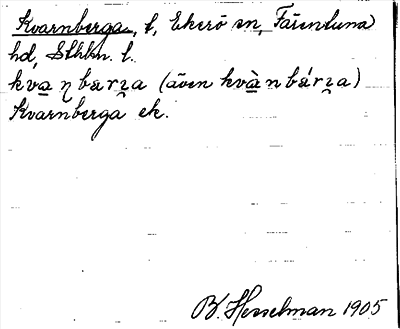 Kvarnberga, t, Ekerö sn, Färentuna
hd, Sthlm. l.
kvaɳbærɪ̯a (även kvànbǽrɪ̯a)
Kvarnberga ek.
B. Hesselman 1905